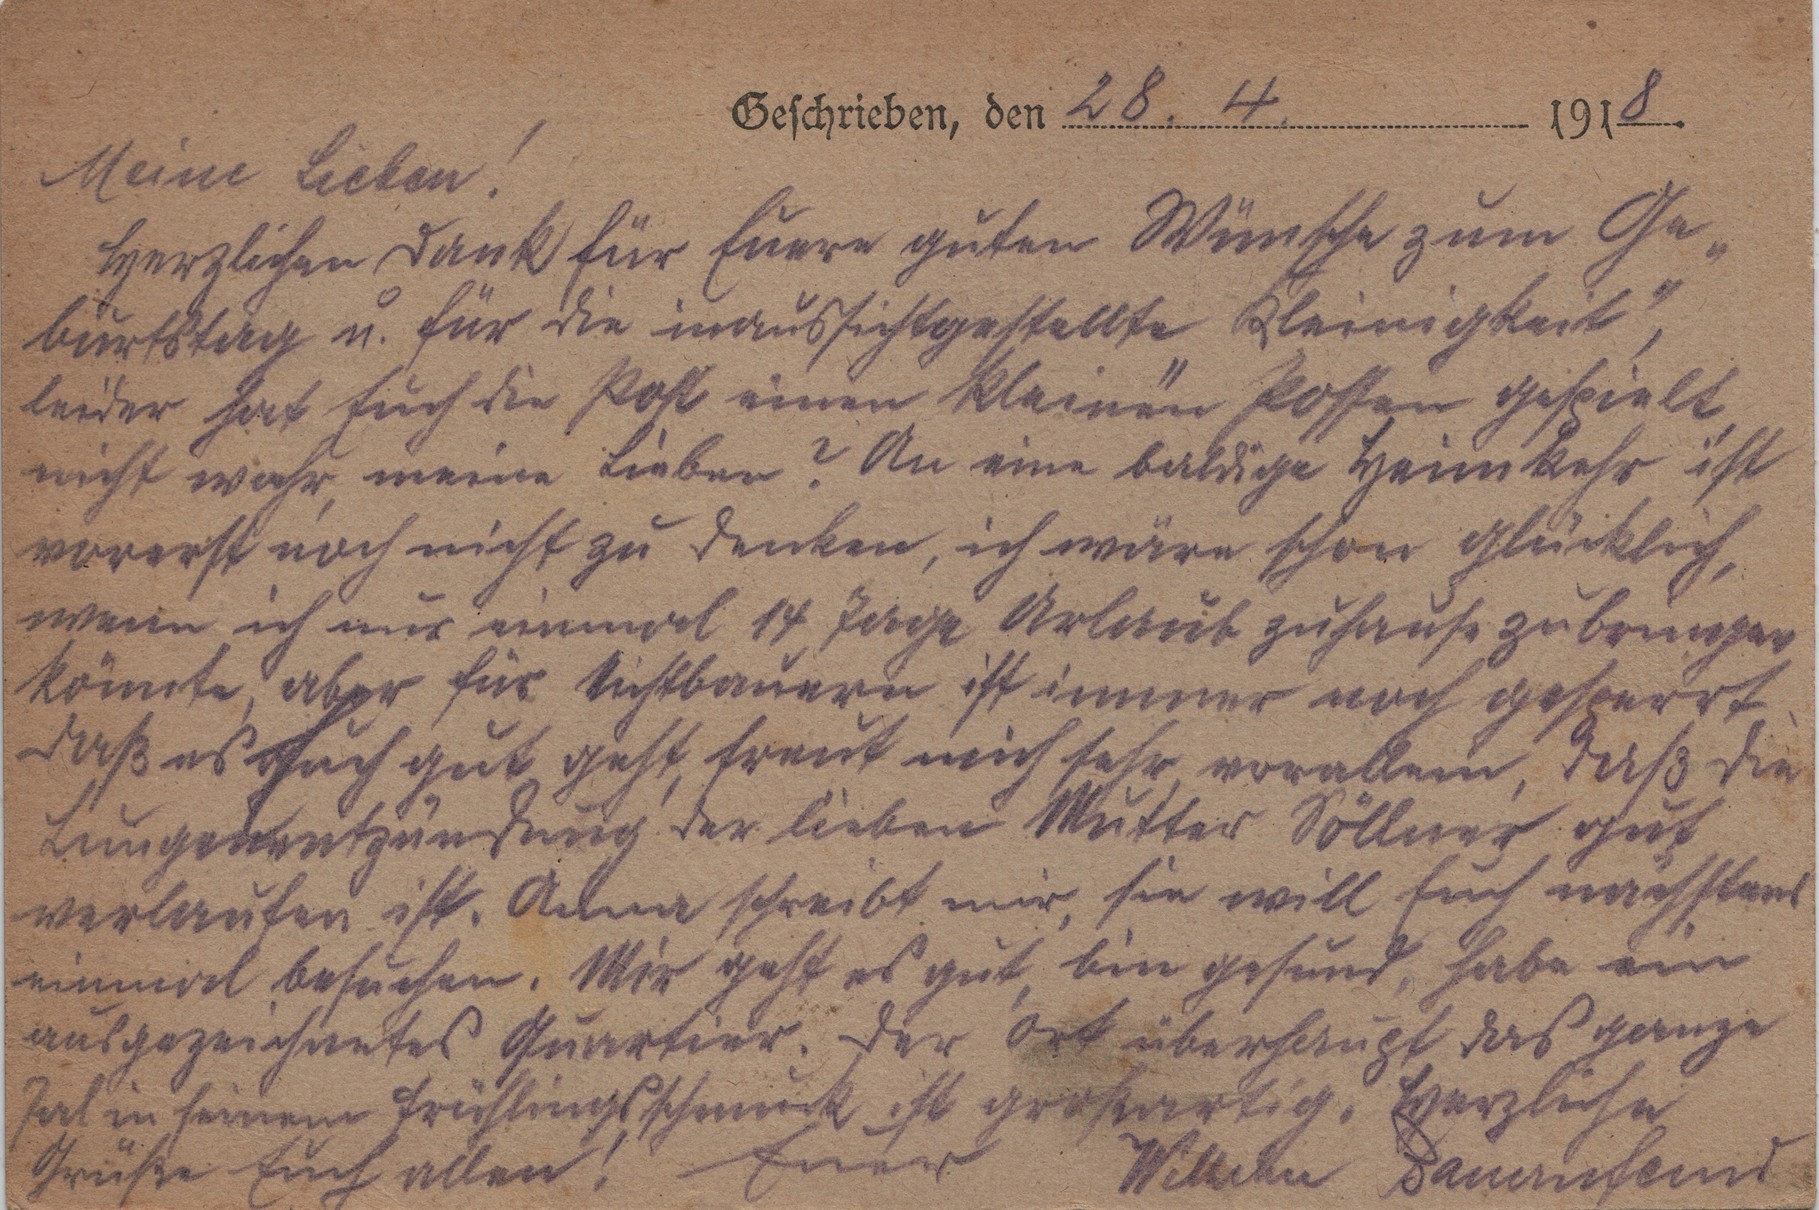 Geschrieben, den 28. 4. 1918.
Meine Lieben!
Herzlichen Dank für Euere guten Wünsche zum Ge„
burtstag u. für die inaussichtgestellte „Kleinigkeit",
leider hat Euch die Post einen kleinen Possen gespielt,
nicht wahr, meine Lieben? An eine baldige Heimkehr ist
vorerst noch nicht zu denken, ich wäre schon glücklich,
wenn ich nur einmal 14 Tage Urlaub zuhause zubringen
könnte, aber für Nichtbauern ist immer noch gesperrt.
Daß es Euch gut geht, freut mich sehr, vorallem, daß die
Lungenentzündung der lieben Mutter Söllner gut
verlaufen ist. Anna schreibt mir, sie will Euch nächstens
einmal besuchen. Mir geht es gut, bin gesund, habe ein
ausgezeichnetes Quartier. Der Ort überhaupt das ganze
Tal in seinem Frühlingsschmuck ist großartig. Herzliche
Grüße Euch allen! Euer Wilhelm Bauernfeind